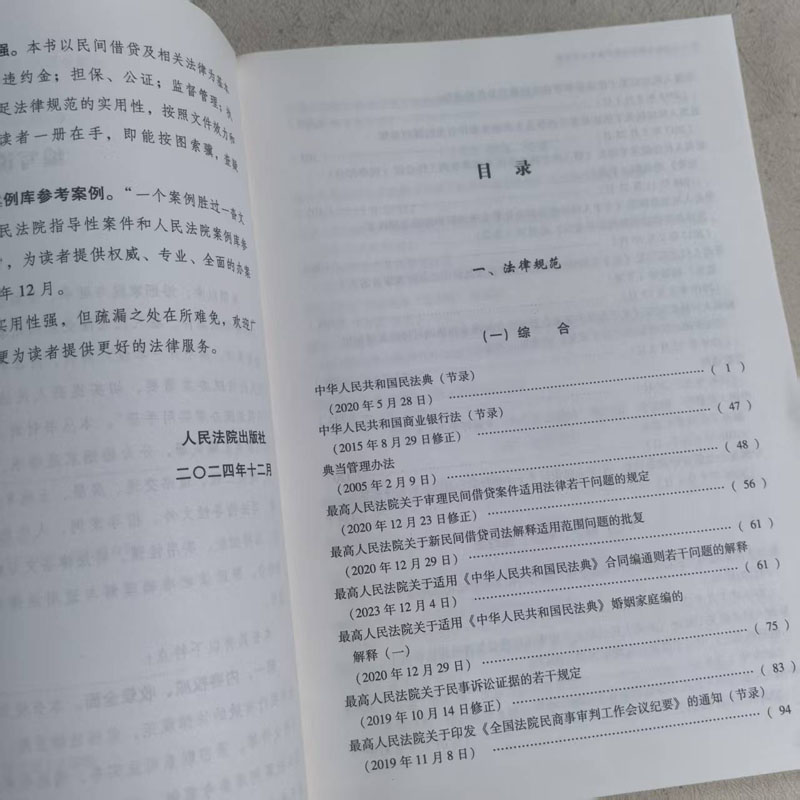 强。本书以民间借贷及相关法律为基本
违约金；担保、公证；监督管理；执
足法律规范的实用性，按照文件效力和
读者一册在手，即能按图索骥，查阅
例库参考案例。“一个案例胜过一沓文
民法院指导性案件和人民法院案例库参
，为读者提供权威、专业、全面的办案
年12月。
实用性强，但疏漏之处在所难免，欢迎广
便为读者提供更好的法律服务。
人民法院出版社
二〇二四年十二月
目录
一、法律规范
（一）综 合
中华人民共和国民法典（节录）
（2020年5月28日）……（1）
中华人民共和国商业银行法（节录）
（2015年8月29日修正）……（47）
典当管理办法
（2005年2月9日）……（48）
最高人民法院关于审理民间借贷案件适用法律若干问题的规定
（2020年12月23日修正）……（56）
最高人民法院关于新民间借贷司法解释适用范围问题的批复
（2020年12月29日）……（61）
最高人民法院关于适用《中华人民共和国民法典》合同编通则若干问题的解释
（2023年12月4日）……（61）
最高人民法院关于适用《中华人民共和国民法典》婚姻家庭编的
解释（一）
（2020年12月29日）……（75）
最高人民法院关于民事诉讼证据的若干规定
（2019年10月14日修正）……（83）
最高人民法院关于印发《全国法院民商事审判工作会议纪要》的通知（节录）
（2019年11月8日）……（94）